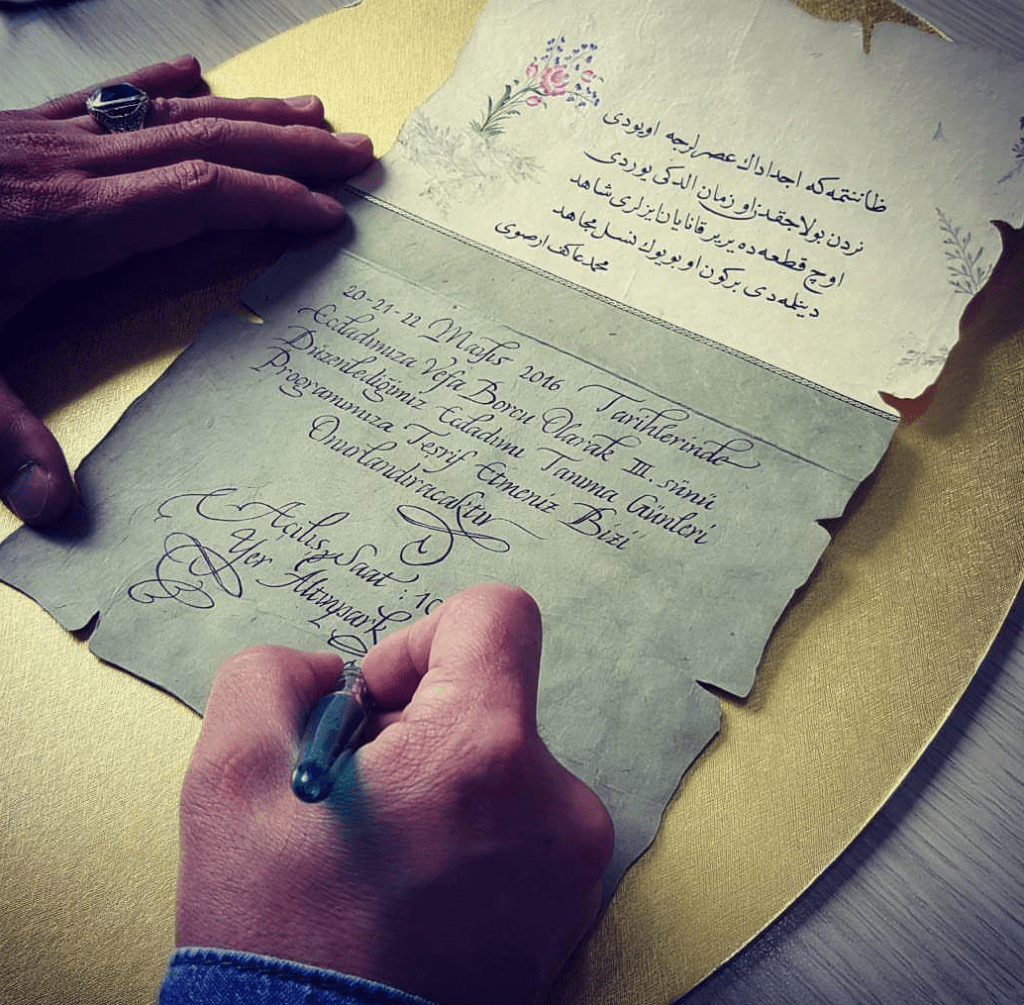 ظاننتمه كه اجدادك عصرلرجه اويودى
نردن بولاجقدن او زمان الدكى يوردى
اوچ قطعه ده يرير قانايان ايزلرى شاهد
دينلمه دى بركون او بويوك نسل مجاهد
محمد عاكف ارصوى
20-21-22 Mayıs 2016 Tarihlerinde
Ecdadımıza Vefa Borcu Olarak III. sünü
Düzenlediğimiz Ecdadımı Tanıma Günleri
Programımıza Teşrif Etmeniz Bizi
Onurlandıracaktır
Açılış Saat : 10
Yer Altınpark